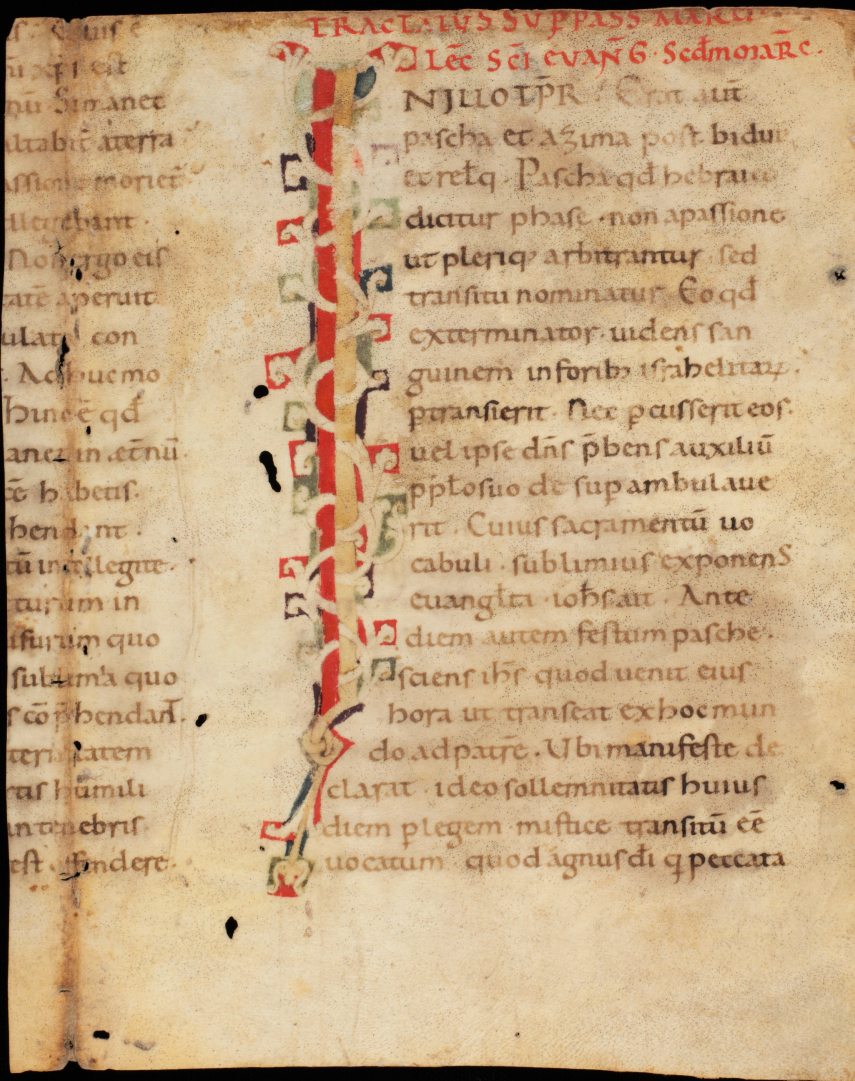 est
Simanet
altabit aterra
moriet
Non ergo eis
aperuit
con
Adhucmo
hinc ē qd
habetis.
hendant.
intellegite.
turum in
quo
sublima quo
cōp̄hendant.
humili
tenebris
est
TRACTATUS SUP PASS MARCI
Lec̄ sc̄i evanḡ. Sc̄dm marc̄.
N ILLO TP̄R. Erat aut̄
pascha et azima post biduu
et relq̄. Pascha qd hebraice
dicitur phase. non apassione
ut pleriq; arbitrantur. sed
transitu nominatur. Eo qd
exterminator. uidens san
guinem in forib; israhelitarꝝ.
ptransierit. Nec pcusserit eos.
uel ipse dn̄s p̄bens auxiliū
pplo suo desup ambulaue
rit. Cuius sacramentū uo
cabuli. sublimius exponens
euangl̄ta. ioh̄s ait. Ante
diem autem festum pasche.
sciens ih̄s quod uenit eius
hora ut transeat exhocmun
do ad patrē. Ubi manifeste de
clarat. ideo sollemnitatis huius
diem p legem mistice transitū eē
uocatum quod agnus di q peccata